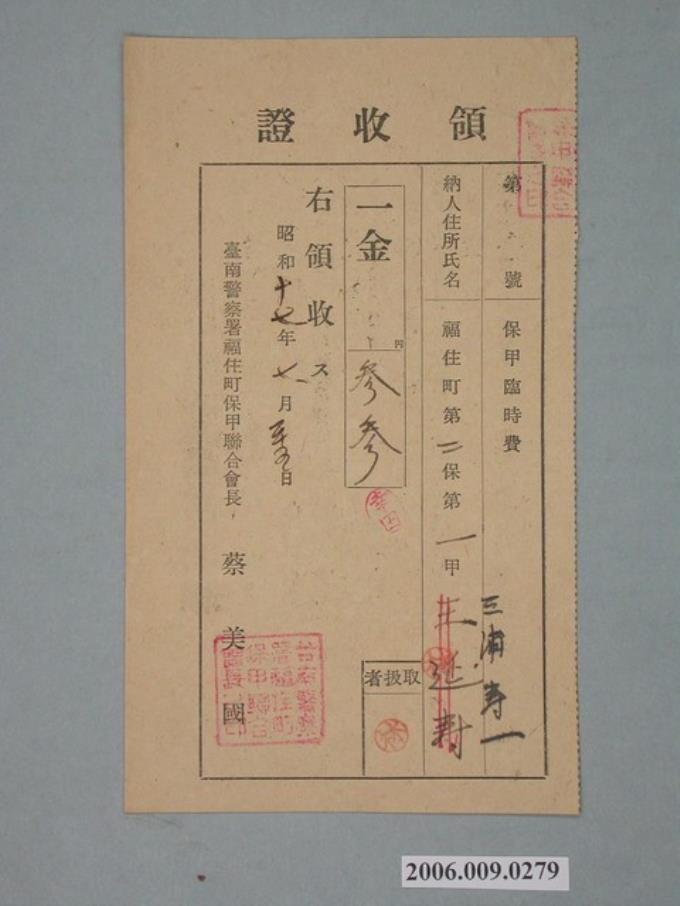 領收證
第 號 保甲臨時費
納人住所氏名 福住町第二保第一甲 王延壽
三浦寿一
一金 円 参参
右領收ス
昭和十七年七月 日
臺南警察署福住町保甲聯合會長，蔡美國
取扱者
臺南警察署福住町保甲聯合會長之印
2006.009.0279